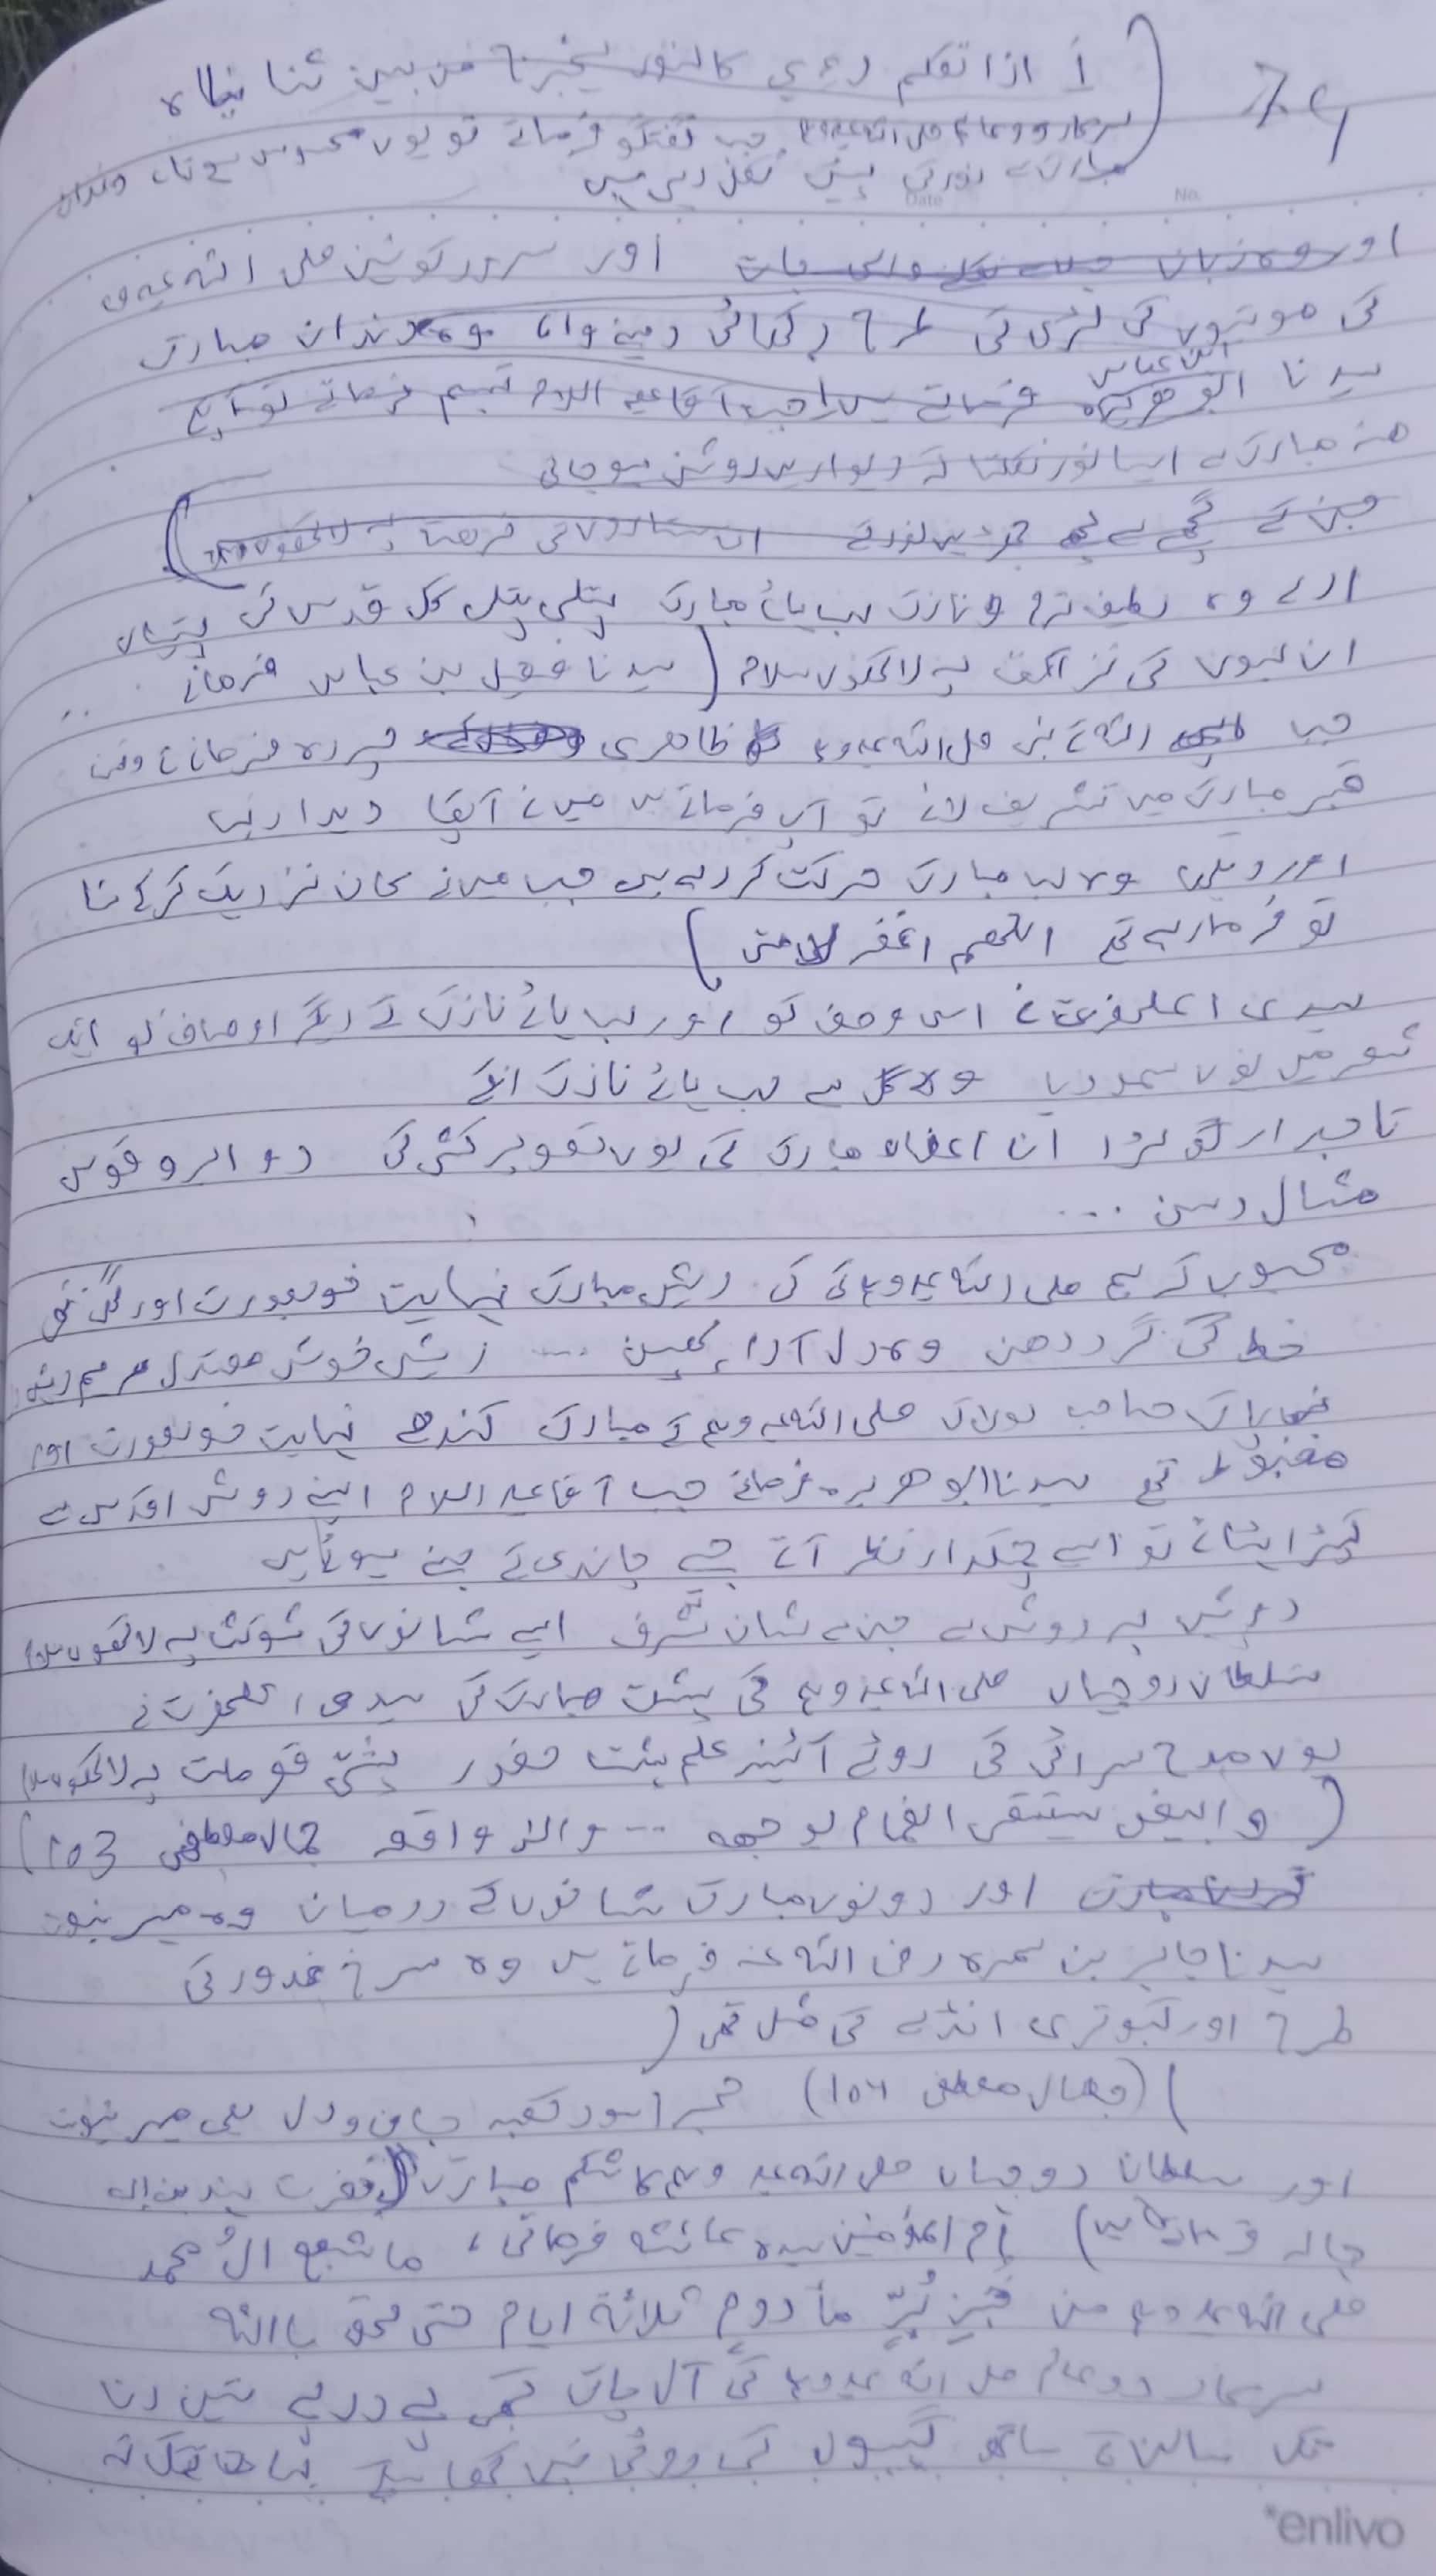 أ اذا تکلم رءي کالنور یخرج من بین ثنایاہ
سرکار دوعالم صلی اللہ علیہ وسلم جب گفتگو فرماتے تو یوں محسوس ہوتا دندان
مبارک سے نور کی نظر رہی ہیں
Date No.
اور وہ زبان اور سرور کونین صلی اللہ علیہ و
کی موتیوں کی لڑی کی طرح دکھائی دینے والے وہ دندان مبارک
ابن عباس
سیدنا ابو ھریرہ فرماتے ہیں جب آقا علیہ السلام تبسم فرماتے تو آپکے
منہ مبارک سے ایسا نور نکلتا کہ دیواریں روشن ہو جاتی
جن کے گچھے سے لچھے جھڑیں نور کے ان ستاروں کی نزھت پہ لاکھوں سلام)
ارے وہ لطیف نرم و نازک لب ہائے مبارک پتلی پتلی گل قدس کی پتیاں
ان لبوں کی نزاکت پہ لاکھوں سلام (سیدنا فضل بن عباس فرماتے
جب اللہ کے نبی صلی اللہ علیہ وسلم ظاھری پردہ فرمانے وقت
قبر مبارک میں تشریف لائے تو آپ فرماتے ہیں میں نے آپکا دیدار کیا
اور دیکھا وہ لب مبارک حرکت کر رہے ہیں جب میں نے کان نزدیک کر کے سنا
تو فرما رہے تھے اللھم اغفر لامتی)
سیدی اعلیحضرت نے اس وصف کو اور لب ہائے نازک کے دیگر اوصاف کو ایک
شعر میں یوں سمو دیا وہ گل ہے لب ہائے نازک انکے
تاجدار گولڑہ ان اعضاء مبارک کی یوں تصویر کشی کی دو ابرو قوس
مثال دسن ...
محبوب کریم صلی اللہ علیہ وسلم کی ریش مبارک نہایت خوبصورت اور گھنی تھی
خط کی گرد دھن وہ دل آراء پھبن .... ریش خوش معتدل مرہم ریش
صاحب لولاک صلی اللہ علیہ وسلم کے مبارک کندھے نہایت خوبصورت اور
مضبوط تھے سیدنا ابو ھریرہ فرماتے جب آقا علیہ السلام اپنے دوش اقدس سے
کپڑا ہٹاتے تو ایسے چمکدار نظر آتے جیسے چاندی کے بنے ہوئے ہیں
دوش بر دوش ہے جن سے شان شرف ایسے شانوں کی شوکت پہ لاکھوں سلام
سلطان دوجہاں صلی اللہ علیہ وسلم کی پشت مبارک کی سیدی اعلحضرت نے
یوں مدح سرائی کی روئے آئینہ علم پشت حضور پشتیِ قصر ملت پہ لاکھوں سلام
(وابیض یستسقی الغمام لوجھہ ... والا واقعہ جمال مصطفی 103)
اور دونوں مبارک شانوں کے درمیان وہ مہر نبوت
سیدنا جابر بن سمرہ رضی اللہ عنہ فرماتے ہیں وہ سرخ غدود کی
طرح اور کبوتری انڈے کی مثل تھی (
)(جمال مصطفی 104) حجر اسود کعبہ جان و دل یعنی مہر نبوت
اور سلطان دوجہاں صلی اللہ علیہ وسلم کا شکم مبارک
ام المؤمنین سیدہ عائشہ فرماتی، ما شبع اٰل محمد
صلی اللہ علیہ وسلم من خبز بُرٍّ مأدوم ثلاثة ایام حتی لحق باللہ
سرکار دوعالم صلی اللہ علیہ وسلم کی آل پاک کبھی پے درپے تین دن
تک سالن کے ساتھ گیہوں کی روٹی نہیں کھائی یہاں تک کہ
enlivo